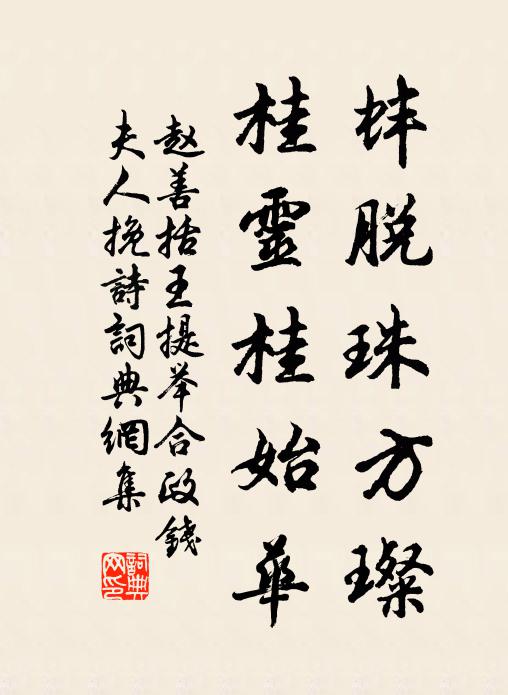 蚌脱珠方璨
桂靈桂始華
赵善括王提举合政錢
夫人挽詩詞典網集
詞典
网印